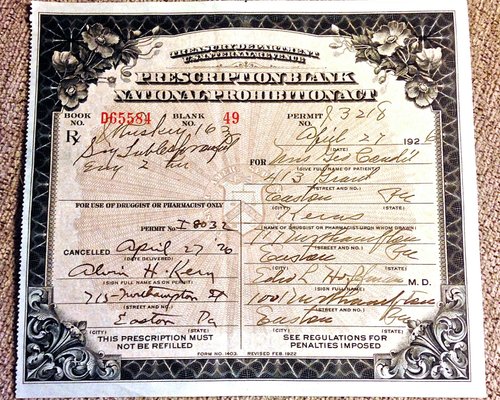 TREASURY DEPARTMENT
U.S. INTERNAL REVENUE
PRESCRIPTION BLANK
NATIONAL PROHIBITION ACT
BOOK NO. D65584 BLANK NO. 49 PERMIT NO.
April 27 1926
(DATE)
Rx
FOR Mrs Geo
(GIVE FULL NAME OF PATIENT)
Every 2 hr
413
(STREET AND NO.)
Easton Pa
(CITY) (STATE)
FOR USE OF DRUGGIST OR PHARMACIST ONLY
Kerns
(NAME OF DRUGGIST OR PHARMACIST UPON WHOM DRAWN)
PERMIT No. I 8032
Northampton
(STREET AND NO.)
CANCELLED April 27 26
(DATE DELIVERED)
Easton Pa
(CITY) (STATE)
Alvin H.
(SIGN FULL NAME AS ON PERMIT)
M.D.
(SIGN FULL NAME)
715 Northampton St
(STREET AND NO.)
Northampton
(STREET AND NO.)
Easton Pa
(CITY) (STATE)
Easton Pa
(CITY) (STATE)
THIS PRESCRIPTION MUST
NOT BE REFILLED
SEE REGULATIONS FOR
PENALTIES IMPOSED
FORM NO. 1403. REVISED FEB. 1922